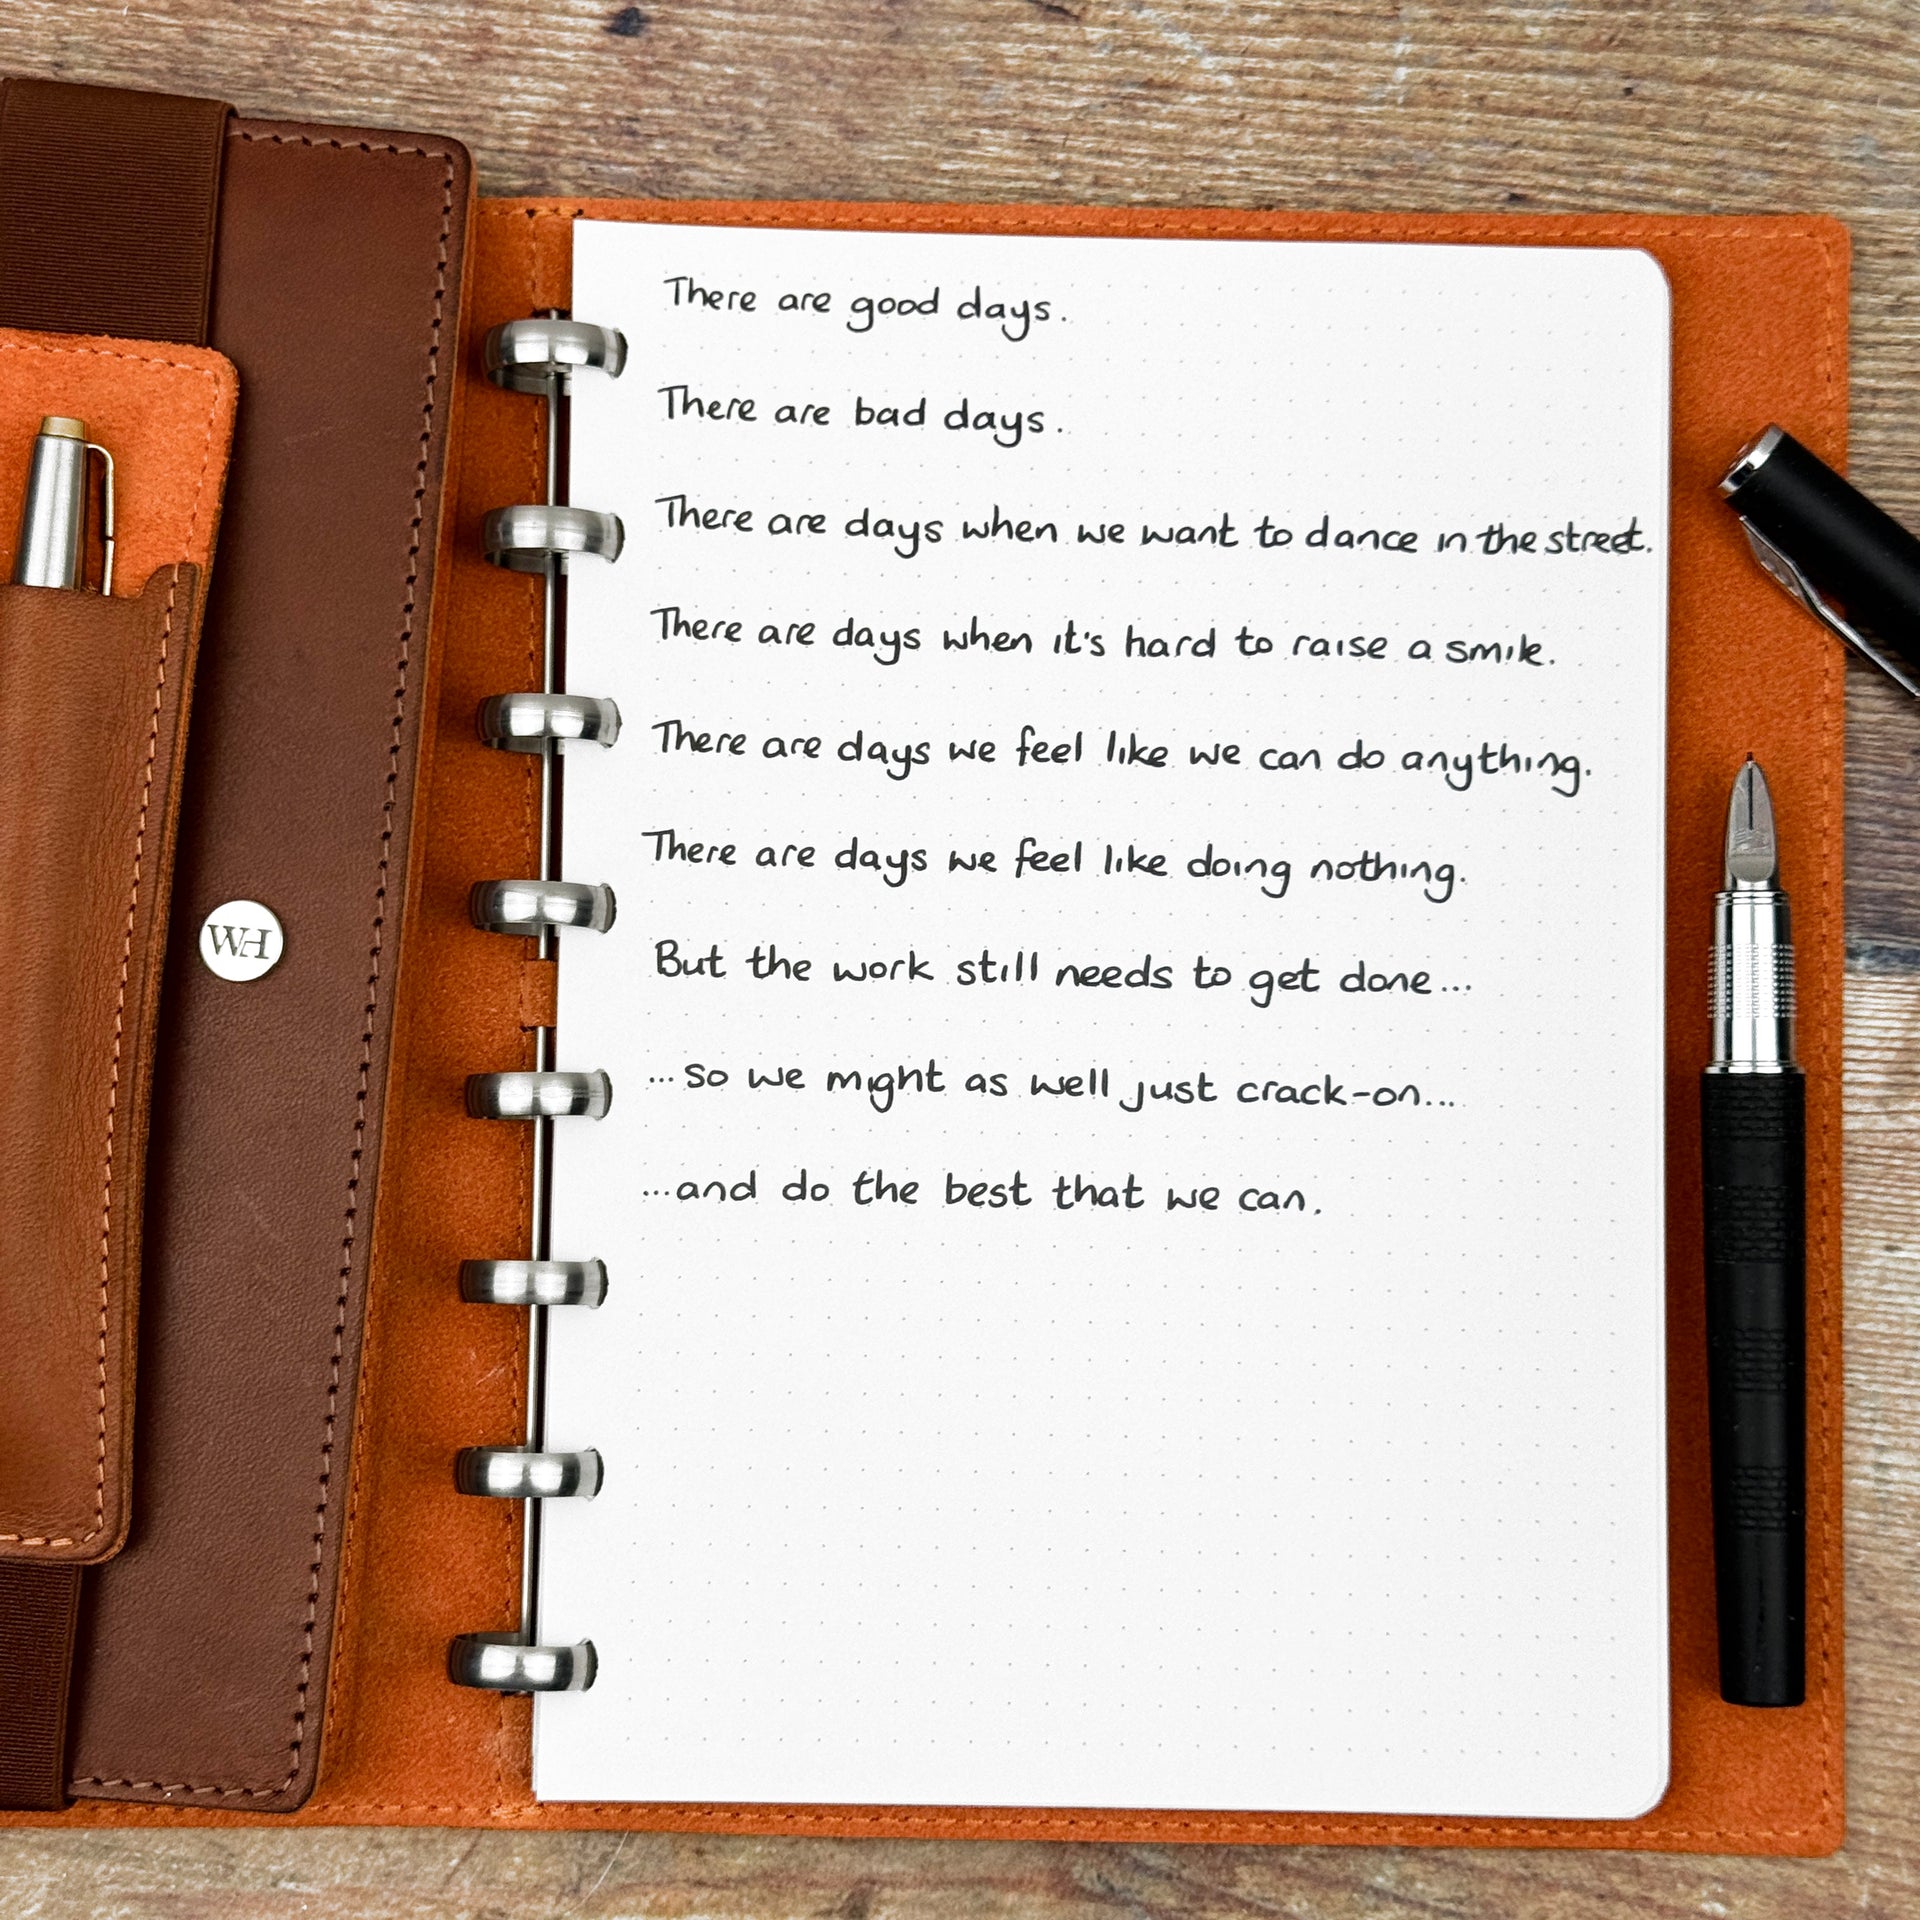 There are good days.
There are bad days.
There are days when we want to dance in the street.
There are days when it's hard to raise a smile.
There are days we feel like we can do anything.
There are days we feel like doing nothing.
But the work still needs to get done...
...so we might as well just crack-on...
...and do the best that we can.
WH